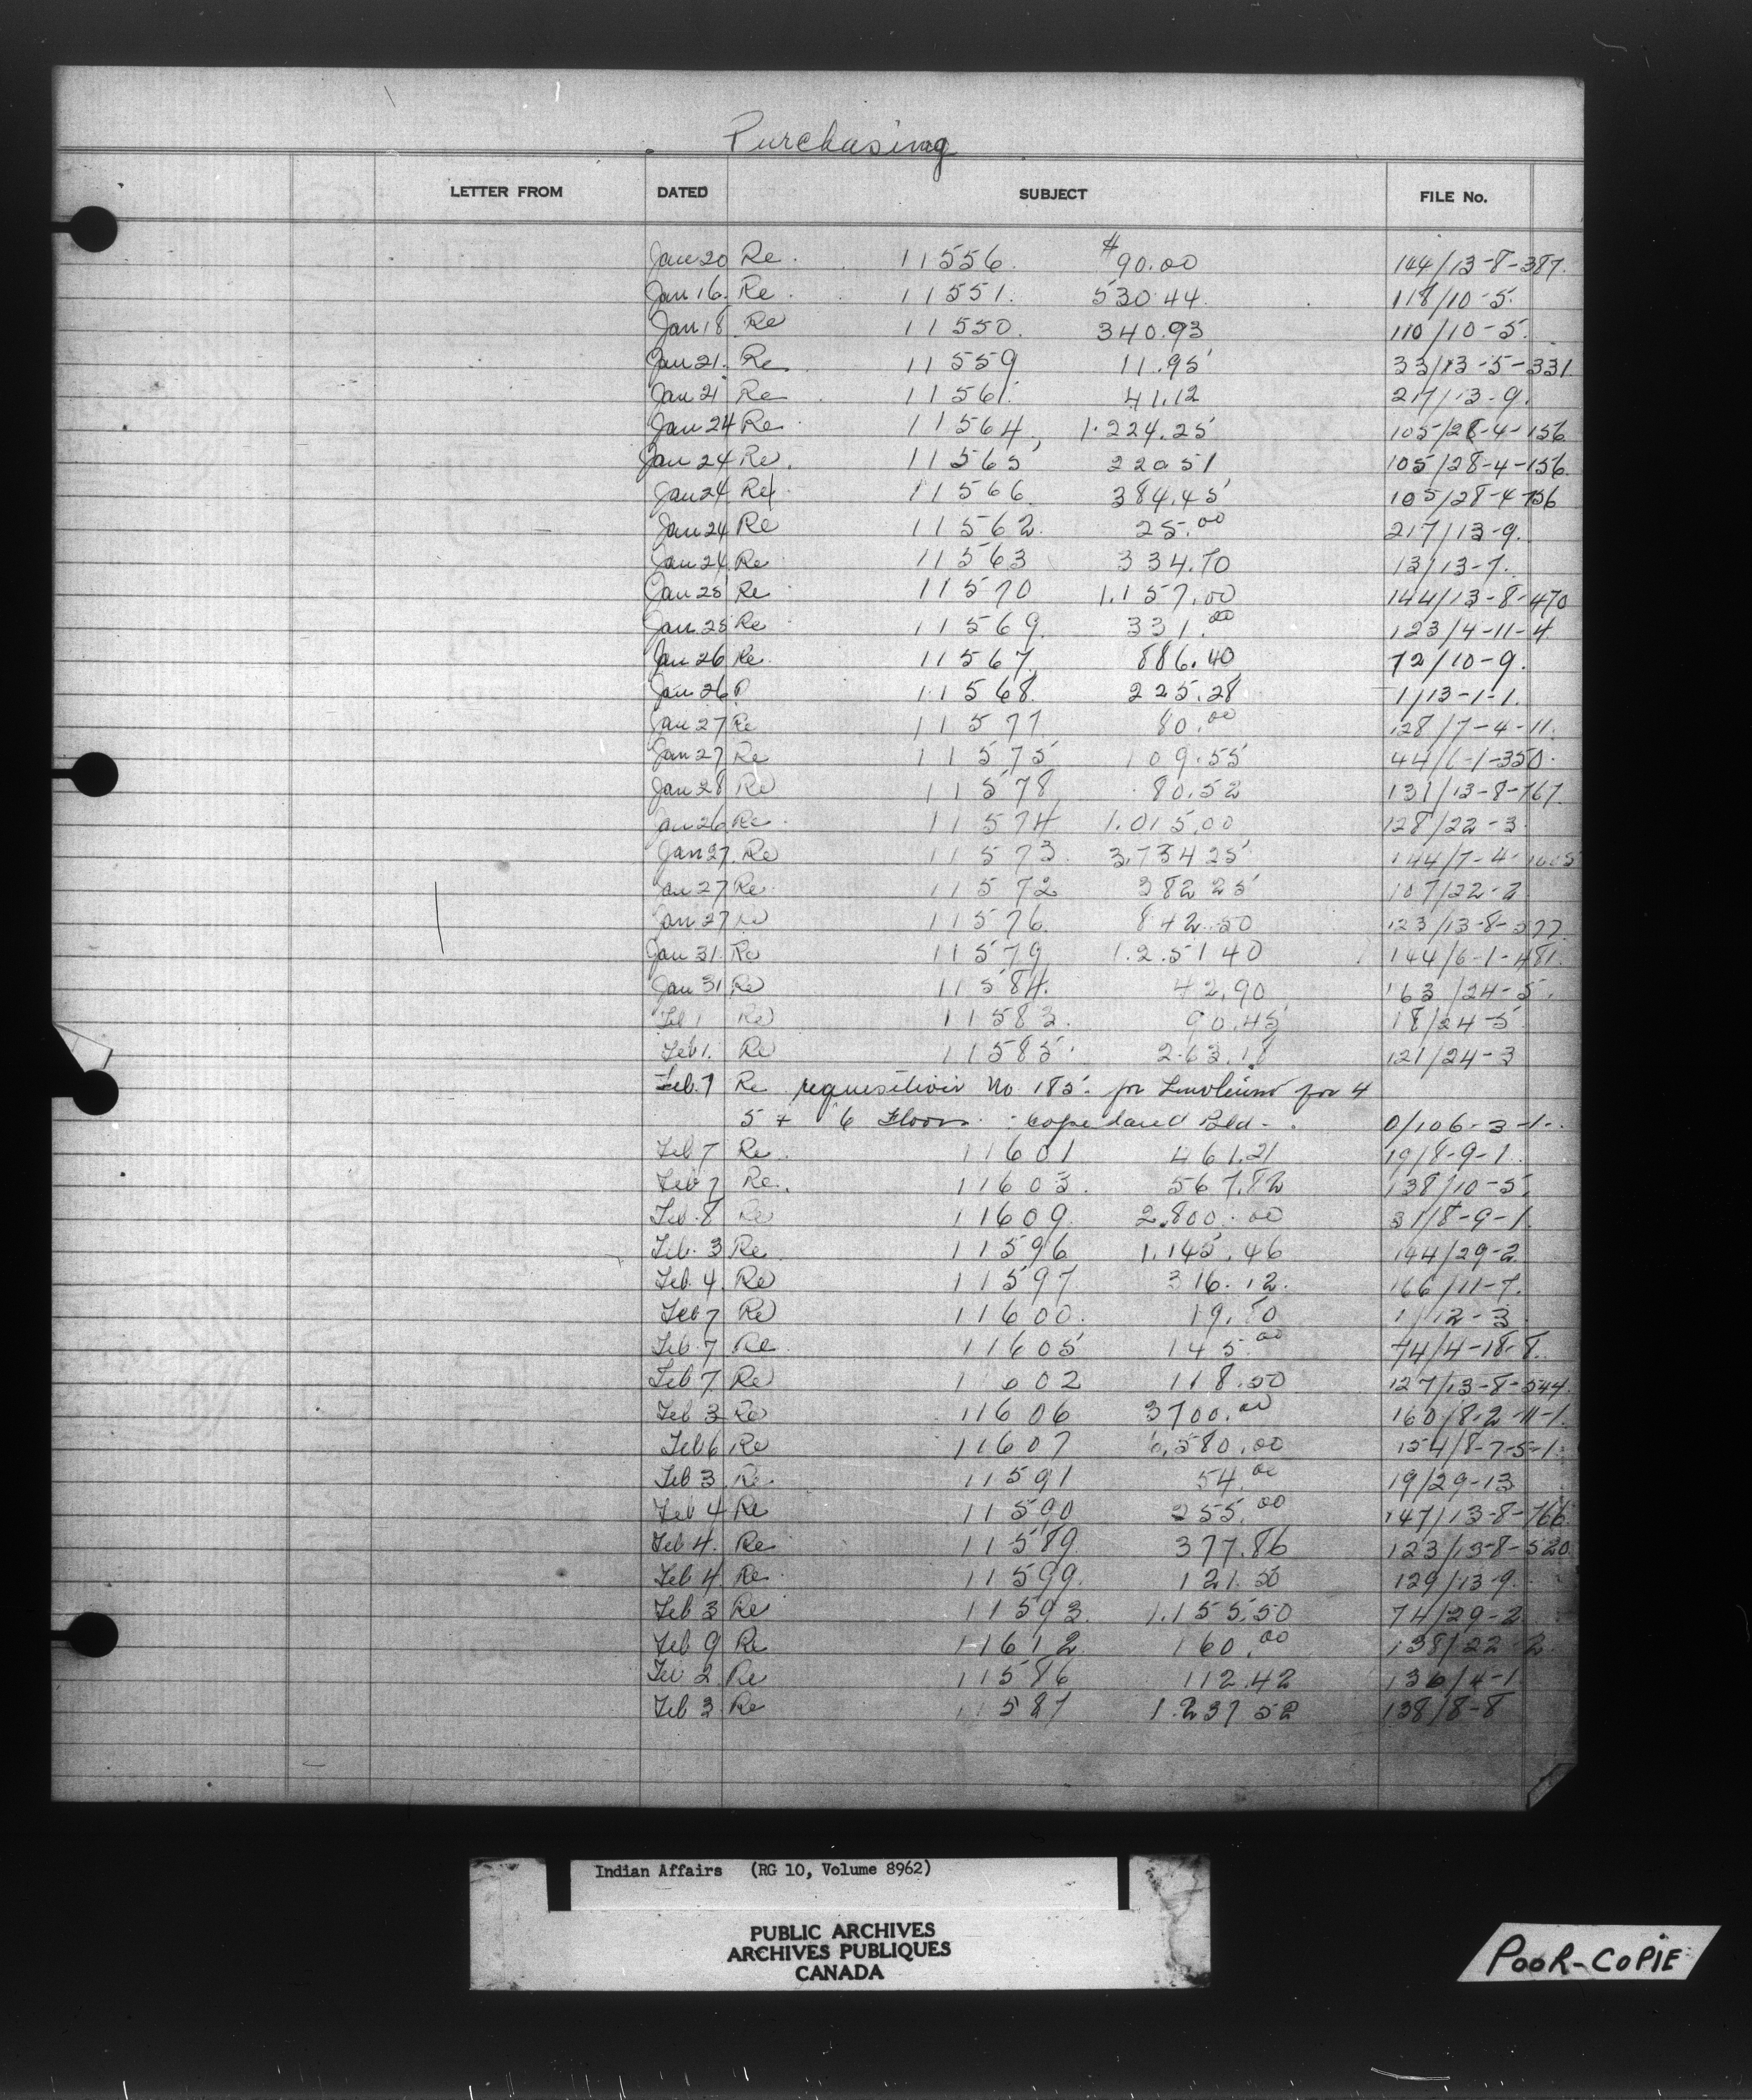 Purchasing
LETTER FROM DATED SUBJECT FILE No.
Jan 20 Re. 11556. $90.00 144/13-8-387.
Jan 16. Re. 11551. 530.44. 118/10-5.
Jan 18 Re 11550. 340.93 110/10-5.
Jan 21. Re. 11559 11.95 33/13-5-331.
Jan 21 Re 11561. 41.12 217/13-9.
Jan 24 Re. 11564, 1.224.25 105/28-4-156
Jan 24 Re. 11565 220.51 105/28-4-156.
Jan 24 Re. 11566. 384.45 105/28-4-156
Jan 24 Re 11562. 25.00 217/13-9.
Jan 24. Re. 11563 334.70 13/13-7.
Jan 25 Re. 11570 1.157.00 144/13-8-470
Jan 25 Re. 11569. 331.00 123/4-11-4
Jan 26 Re. 11567. 886.40 72/10-9.
Jan 26 11568. 225.28 1/13-1-1.
Jan 27 Re 11577. 80.00 128/7-4-11.
Jan 27 Re 11575 109.55 44/6-1-350.
Jan 28 Re 11578 80.52 131/13-8-767.
Jan 26 Re. 11574 1.015.00 128/22-3.
Jan 27. Re 11573. 3,734 25
Jan 27 Re. 11572 382 25 107/22-2
Jan 27 Re 11576. 842.50
Jan 31. Re 11579 1.251 40 144/6-1-481.
Jan 31 Re 11584. 42.90 163/24-5.
Feb 1 Re 11583. 90.45 18/24-5
Feb 1. Re 11585. 263.18 121/24-3
Feb. 7 Re requesition No 185. for Linoleum for 4
5 + 6 Floors. Copeland Bld-. 0/106-3-1-.
Feb 7 Re. 11601 461.21 19/8-9-1.
Feb 7 Re. 11603. 567.82 138/10-5.
Feb. 8 Re 11609. 2.800.00 31/8-9-1.
Feb. 3 Re. 11596 1.145.46 144/29-2.
Feb. 4. Re 11597. 316.12. 166/11-7.
Feb 7 Re 11600. 1/12-3
Feb. 7 Re. 11605 145.00 74/4-18-8.
Feb 7. Re 11602 118.50 127/13-8-544.
Feb 3 Re 11606 3700.00 160/8-2-11-1.
Feb 6 Re 11607 6,580.00 154/8-7-5-1.
Feb 3 Re. 11591 54.00 19/29-13
Feb 4 Re 11590 255.00 147/13-8-766.
Feb 4. Re. 11589. 377.86 123/13-8-520
Feb 4 Re. 11599. 121.50 129/13-9.
Feb 3 Re 11593. 1.155.50 74/29-2
Feb 9 Re 11612. 160.00 138/22-2.
Feb 2. Re 11586 112.42 136/4-1
Feb 3 Re 11587 1.237 52 138/8-8
Indian Affairs (RG 10, Volume 8962)
PUBLIC ARCHIVES
ARCHIVES PUBLIQUES
CANADA
POOR-COPIE